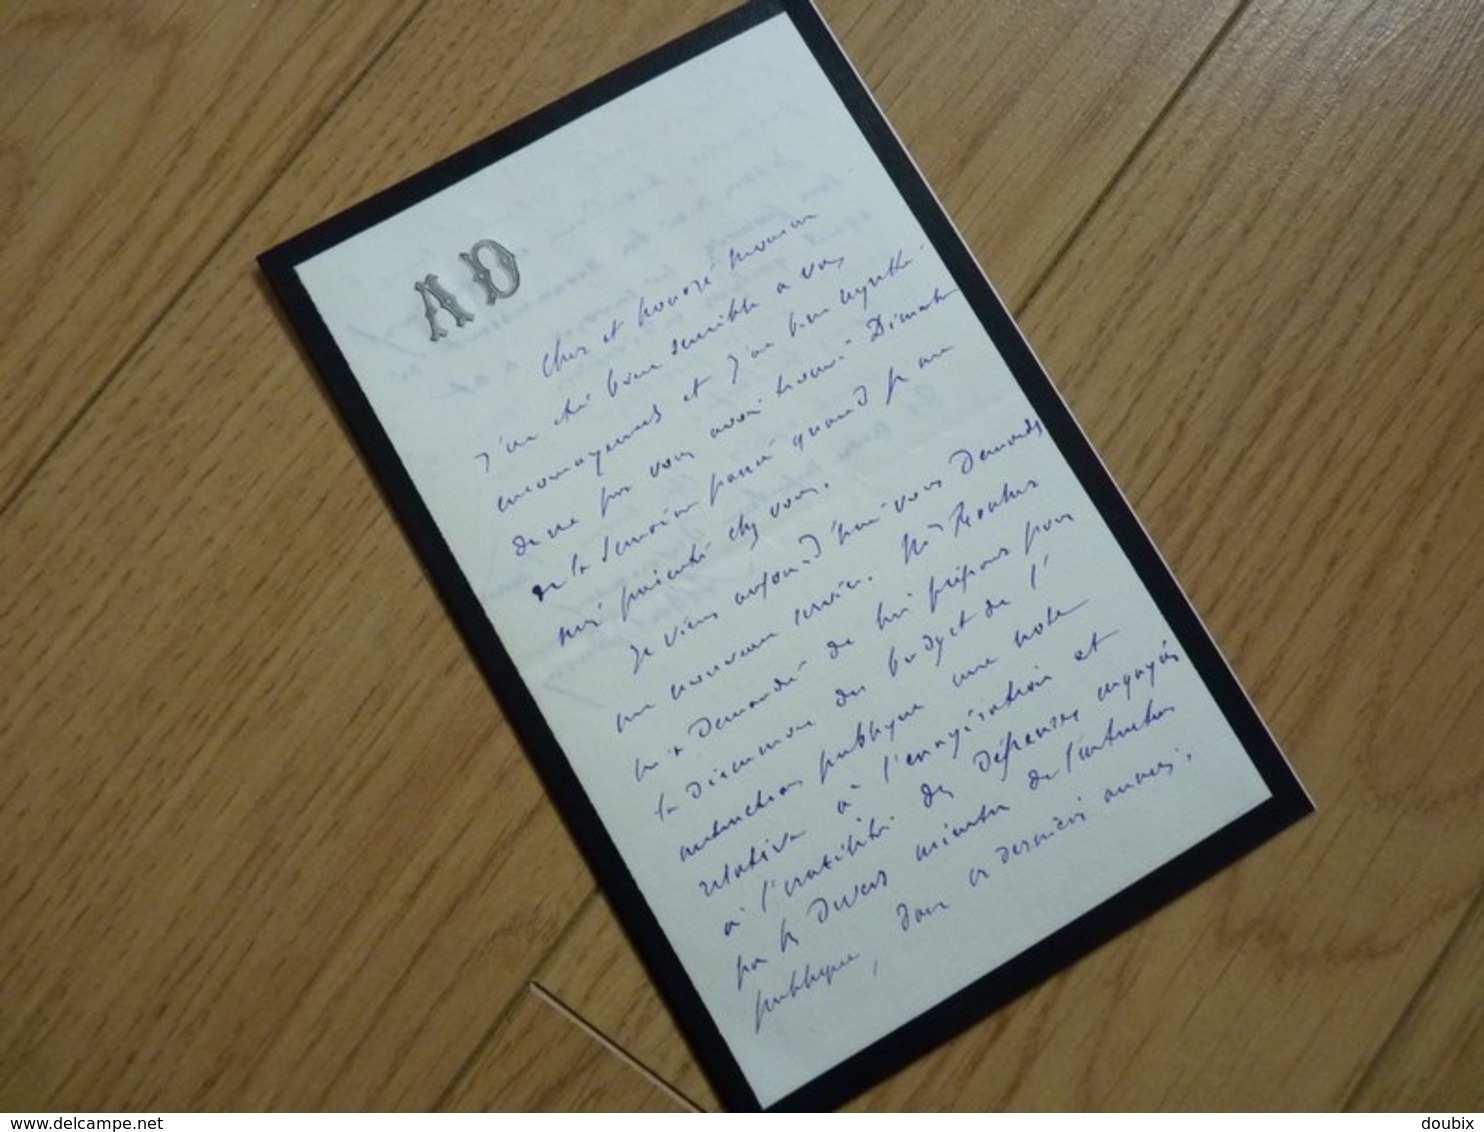 AD
Cher et honoré Monsieur
J'ai été bien sensible à vos
encouragements et j'ai bien regretté
de ne pas vous avoir trouvé Dimanche
de la semaine passée quand je me
suis présenté chez vous.
Je viens aujourd'hui vous demander
un nouveau service. Mr
m'a demandé de lui préparer pour
la Discussion du budget de l'
instruction publique une note
relative à l'exagération et
à l'inutilité des Dépenses engagées
par les Divers ministres de l'instruction
publique, dans ces dernières années.
delcampe.net
doubix